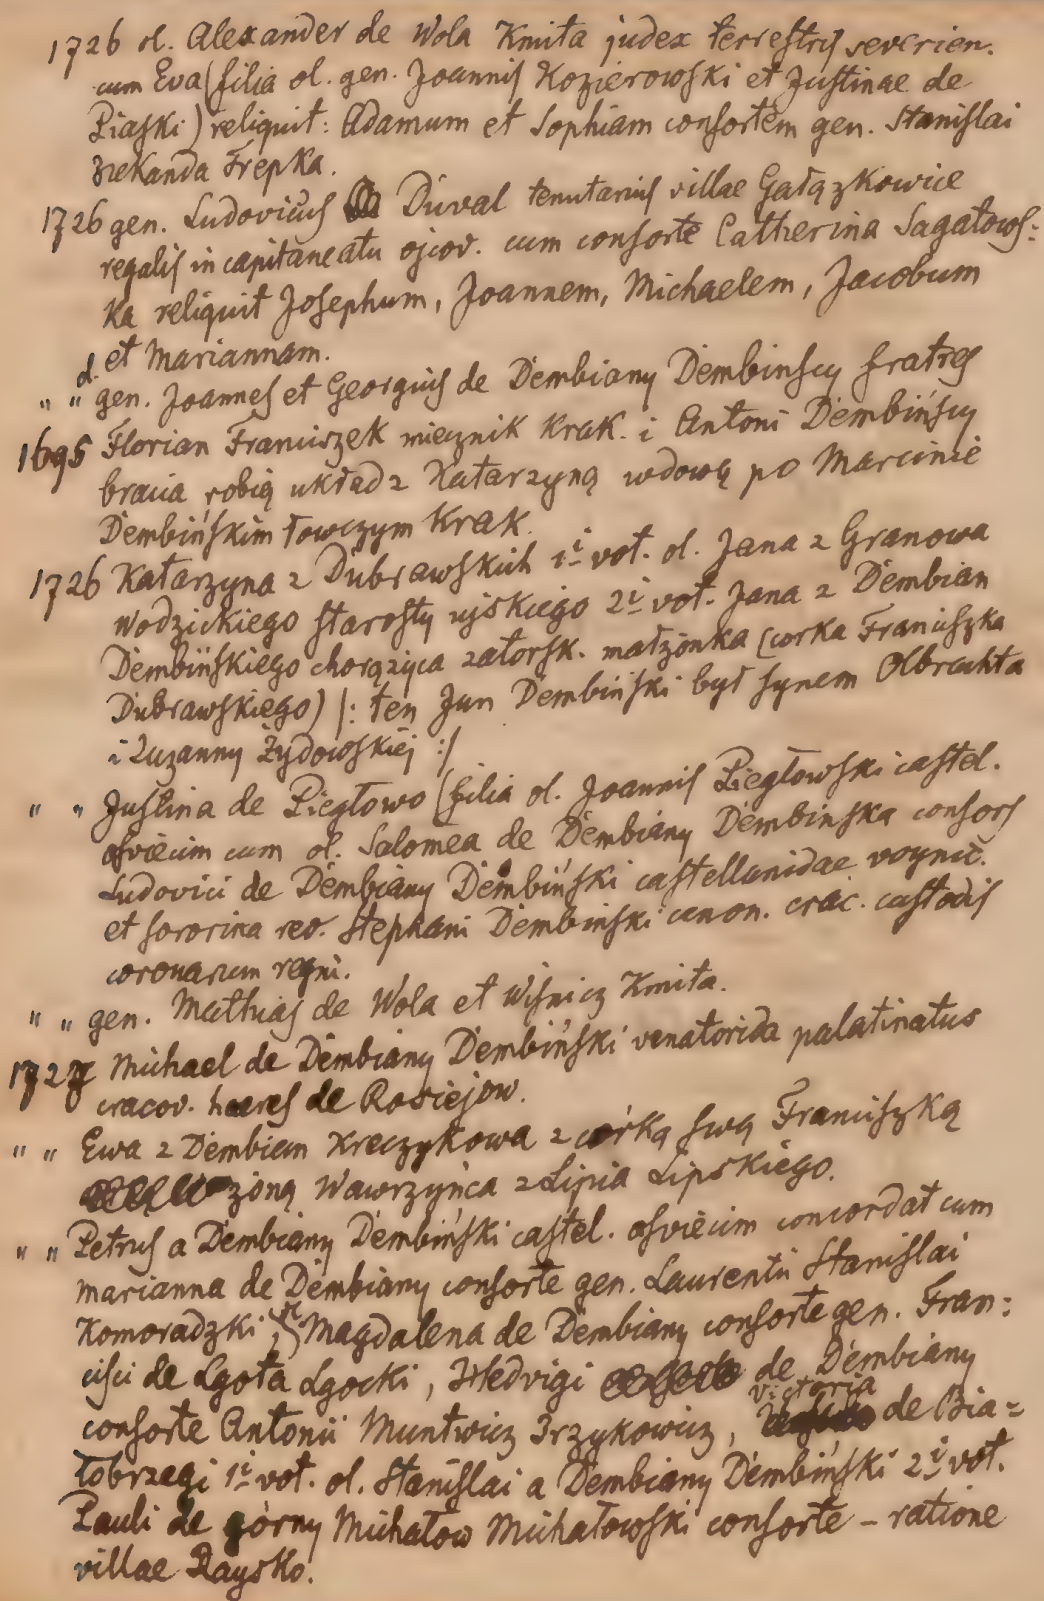 1726 ol. Alexander de Wola Kmita judex terrestris severien.
cum Eva (filia ol. gen. Joannis Kozierowski et Justinae de
Piaski) reliquit: Adamum et Sophiam consortem gen. Stanislai
Trepka.
1726 gen. Ludovicus Duval tenutarius villae Gałązkowice
regalis in capitaneatu ojcov. cum consorte Catherina Sagatows=
ka reliquit Josephum, Joannem, Michaelem, Jacobum
et Mariannam.
" " d. gen. Joannes et Georgius de Dembiany Dembinscy fratres
1695 Florian Franciszek miecznik Krak. i Antoni Dembińscy
bracia robią układ z Katarzyną wdową po Marcinie
Dembińskim łowczym Krak.
1726 Katarzyna z Dubrawskich 1i vot. ol. Jana z Granowa
Wodzickiego starosty ujskiego 2i vot. Jana z Dembian
Dembińskiego chorążyca zatorsk. małżonka (corka Franciszka
Dubrawskiego) /: ten Jan Dembiński był synem Olbrachta
i Zuzanny Żydowskiej :/
" " Justina de Piegłowo (filia ol. Joannis Piegłowski castel.
osviecim cum ol. Salomea de Dembiany Dembinska consors
Ludovici de Dembiany Dembiński castellanidae voynic.
et sororina rev. Stephani Dembinski canon. crac. custodis
coronarum regni.
" " gen. Mathias de Wola et Wisnicz Kmita.
1727 Michael de Dembiany Dembiński venatorida palatinatus
cracov. haeres de Rosiejow.
" " Ewa z Dembian Kreczykowa z córką swą Franciszką
żoną Wawrzyńca z Lipia Lipskiego.
" " Petrus a Dembiany Dembiński castel. osviecim concordat cum
Marianna de Dembiany consorte gen. Laurentii Stanislai
Komoradzki, Magdalena de Dembiany consorte gen. Fran=
cisci de Lgota Lgocki, Hedvigi de Dembiany
consorte Antonii Muntwicz Irzykowicz, Victoria de Bia=
łobrzegi 1i vot. ol. Stanislai a Dembiany Dembiński 2i vot.
Pauli de górny Michałow Michałowski consorte – ratione
villae Raysko.